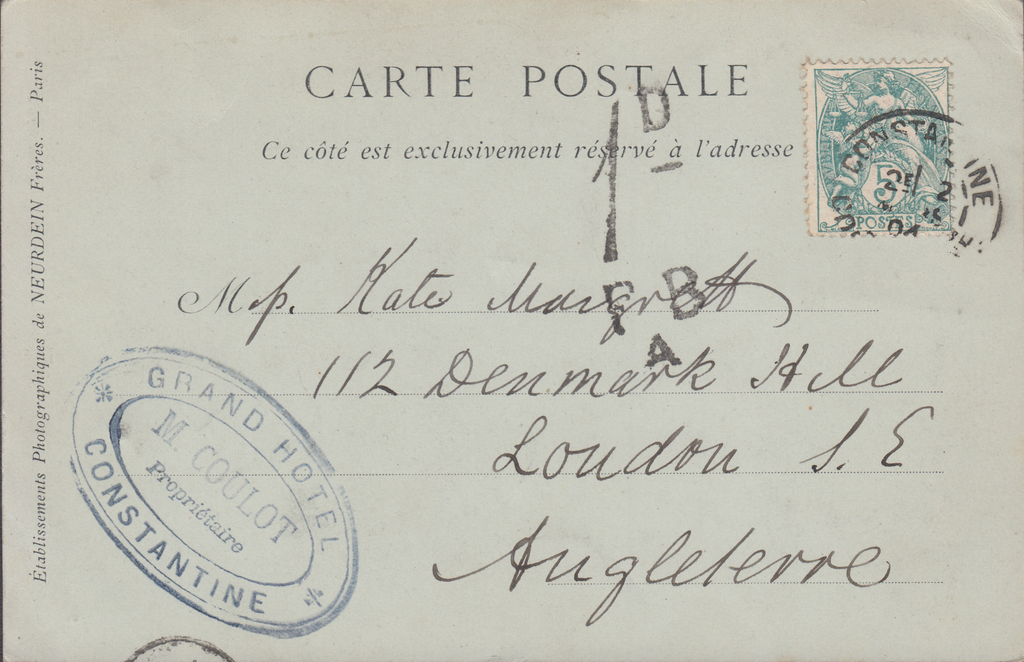 CARTE POSTALE
Ce côté est exclusivement réservé à l'adresse
1D
5
POSTES
CONSTANTINE
2E
04
Kate
F B
A
112 Denmark Hill
London S. E
Angleterre
GRAND HOTEL
M. COULOT
Propriétaire
CONSTANTINE
Établissements Photographiques de NEURDEIN Frères. — Paris